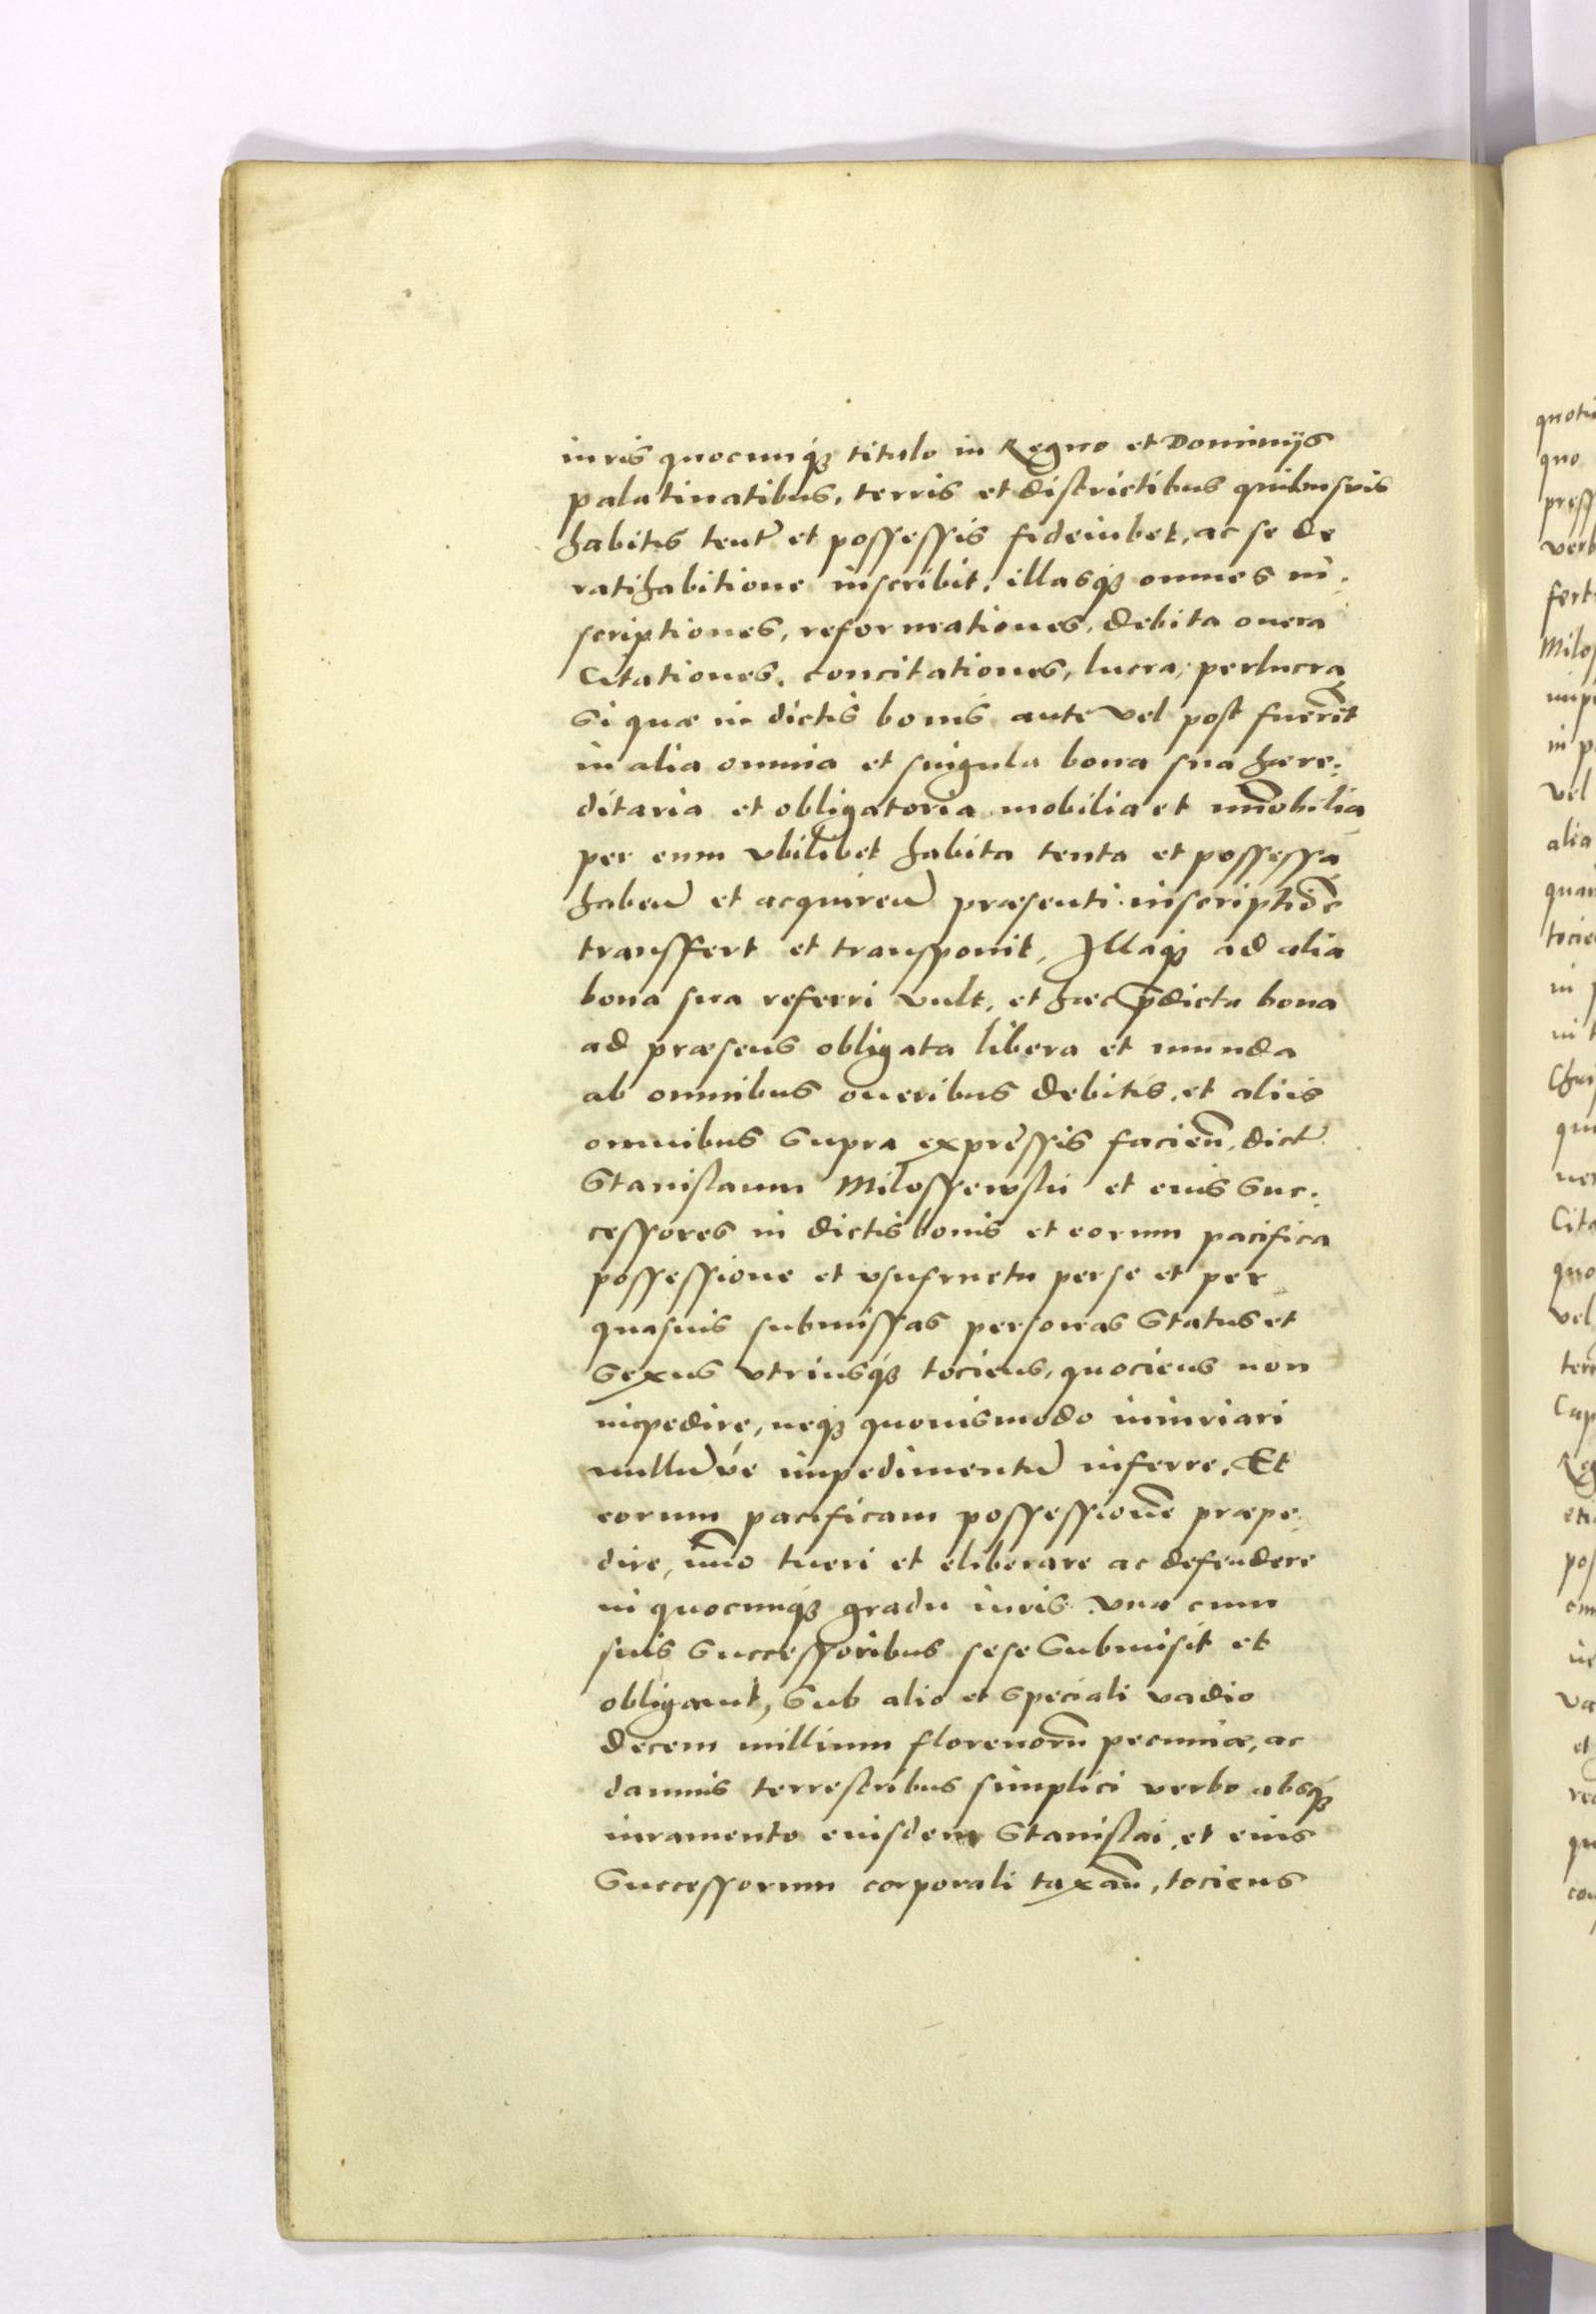 iuris quocunq́ꝫ titulo in Regno et Dominijs
palatinatibus, terris et districtibus quibusvis
habitis tent̃ et possessis fideiubet, ac se de
ratihabitione inscribit, illasq́ꝫ omnes in:
scriptiones, reformationes, debita onera
Citationes, concitationes, lucra, perlucra
Si quæ in dictis bonis ante vel post fuerĩt
in alia omnia et singula bona sua hære:
ditaria et obligatoria mobilia et im̃obilia
per eum vbilibet habita tenta et possessa
habeñ et acquireñ præsenti inscriptiõe
transffert et transponit, Illaq́ꝫ ad alia
bona sua referri vult, et hæc p̃dicta bona
ad præsens obligata libera et munda
ab omnibus oneribus debitis, et aliis
omnibus Supra expressis facieñ, dict̃
Stanislaum Milossewski et eius Suc:
cessores in dictis bonis et eorum pacifica
possessione et vsufructu per se et per
quasuis submissas personas Status et
Sexus vtriusq́ꝫ tociens, quociens non
impedire, neqꝫ quouismodo iniuriari
nullũve impedimentũ inferre, Et
eorum pacificam possessionẽ præpe:
dire, im̃o tueri et eliberare ac defendere
in quocunq́ꝫ gradu iuris vna cum
suis Successoribus sese Submisit et
obligauit, Sub alio et speciali vadio
decem millium florenorũ pecuniæ, ac
damnis terrestribus simplici verbo absq́ꝫ
iuramento eiusdem Stanislai, et eius
Successorum corporali taxañ, tociens
quo
verb
vel
alia
in
vel
et